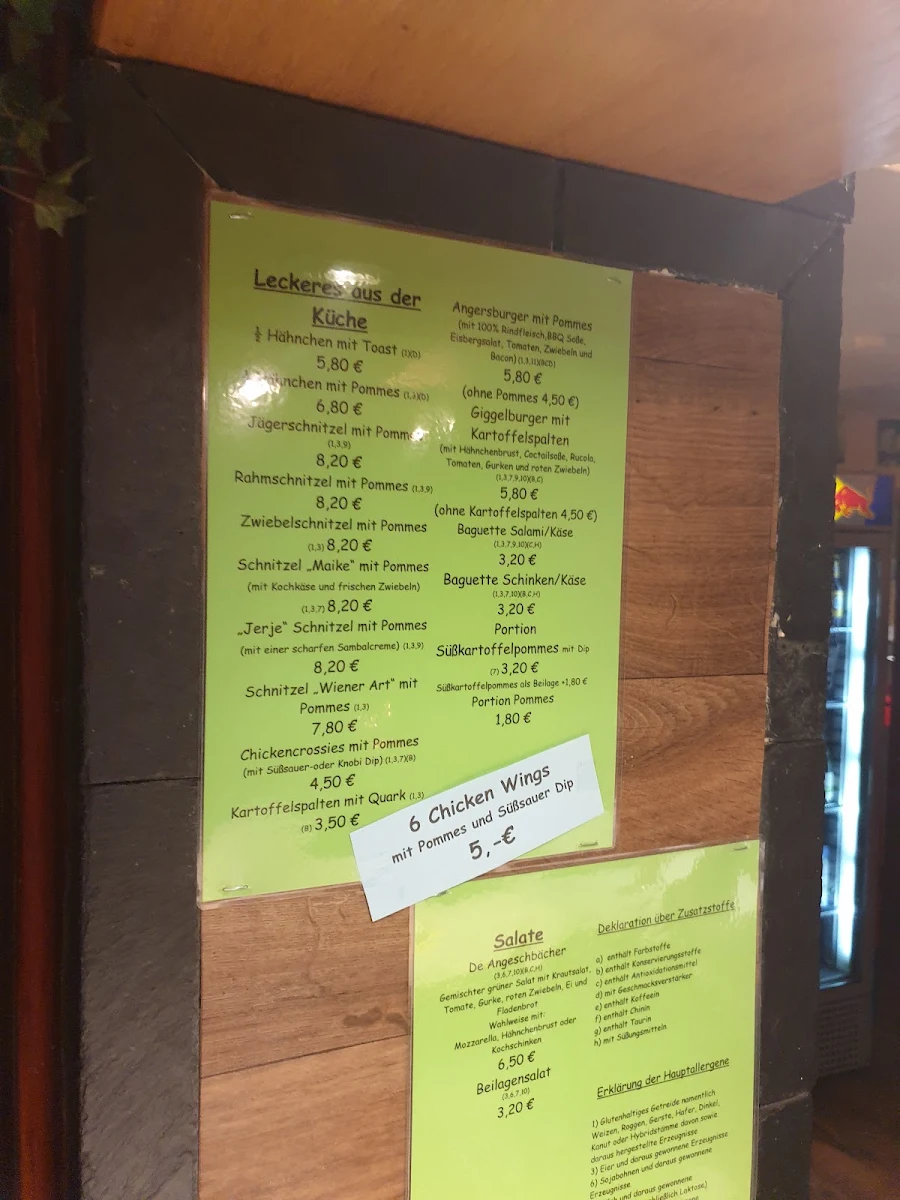 Leckeres aus der
Küche
½ Hähnchen mit Toast (1)(D)
5,80 €
Hähnchen mit Pommes (1,3)(D)
6,80 €
Jägerschnitzel mit Pommes
(1,3,9)
8,20 €
Rahmschnitzel mit Pommes (1,3,9)
8,20 €
Zwiebelschnitzel mit Pommes
(1,3) 8,20 €
Schnitzel „Maike“ mit Pommes
(mit Kochkäse und frischen Zwiebeln)
(1,3,7) 8,20 €
„Jerje“ Schnitzel mit Pommes
(mit einer scharfen Sambalcreme) (1,3,9)
8,20 €
Schnitzel „Wiener Art“ mit
Pommes (1,3)
7,80 €
Chickencrossies mit Pommes
(mit Süßsauer-oder Knobi Dip) (1,3,7)(B)
4,50 €
Kartoffelspalten mit Quark (1,3)
(B) 3,50 €
Angersburger mit Pommes
(mit 100% Rindfleisch,BBQ Soße,
Eisbergsalat, Tomaten, Zwiebeln und
Bacon) (1,3,11)(BCD)
5,80 €
(ohne Pommes 4,50 €)
Giggelburger mit
Kartoffelspalten
(mit Hähnchenbrust, Coctailsoße, Rucola,
Tomaten, Gurken und roten Zwiebeln)
(1,3,7,9,10)(B,C)
5,80 €
(ohne Kartoffelspalten 4,50 €)
Baguette Salami/Käse
(1,3,7,9,10)(C,H)
3,20 €
Baguette Schinken/Käse
(1,3,7,10)(B,C,H)
3,20 €
Portion
Süßkartoffelpommes mit Dip
(7) 3,20 €
Süßkartoffelpommes als Beilage +1,80 €
Portion Pommes
1,80 €
6 Chicken Wings
mit Pommes und Süßsauer Dip
5,-€
Salate
De Angeschbächer
(3,6,7,10)(B,C,H)
Gemischter grüner Salat mit Krautsalat,
Tomate, Gurke, roten Zwiebeln, Ei und
Fladenbrot
Wahlweise mit:
Mozzarella, Hähnchenbrust oder
Kochschinken
6,50 €
Beilagensalat
(3,6,7,10)
3,20 €
Deklaration über Zusatzstoffe
a) enthält Farbstoffe
b) enthält Konservierungsstoffe
c) enthält Antioxidationsmittel
d) mit Geschmacksverstärker
e) enthält Koffeein
f) enthält Chinin
g) enthält Taurin
h) mit Süßungsmitteln
Erklärung der Hauptallergene
1) Glutenhaltiges Getreide namentlich
Weizen, Roggen, Gerste, Hafer, Dinkel,
Kamut oder Hybridstämme davon sowie
daraus hergestellte Erzeugnisse
3) Eier und daraus gewonnene Erzeugnisse
6) Sojabohnen und daraus gewonnene
Erzeugnisse
und daraus gewonnene
Laktose)